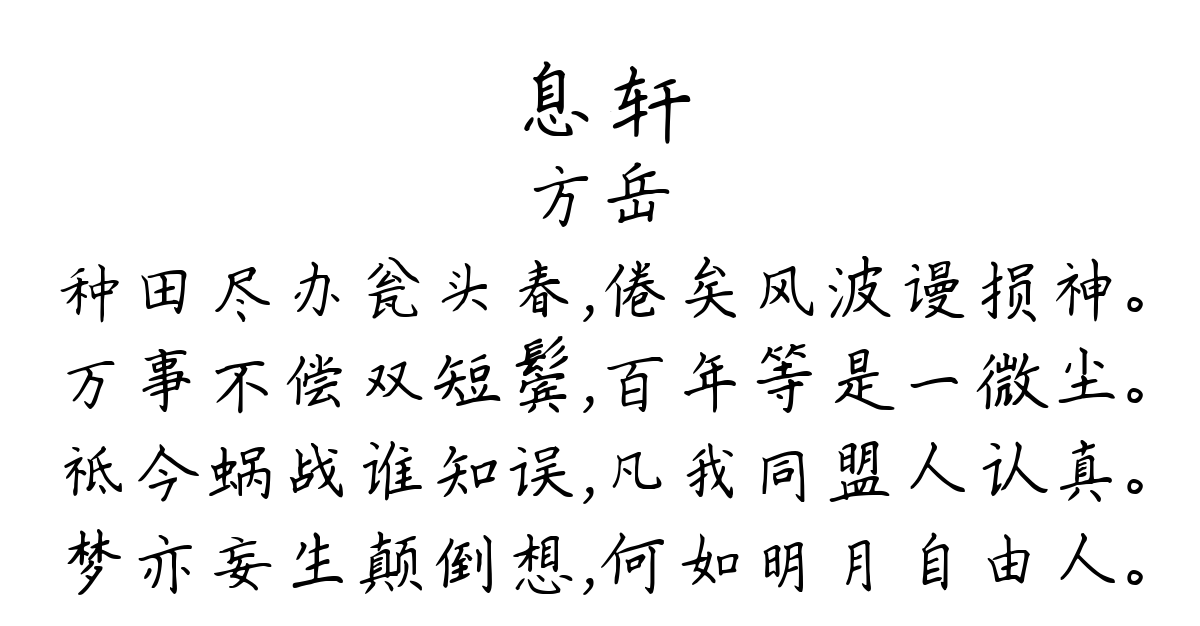 息轩
方岳
种田尽办瓮头春,倦矣风波谩损神。
万事不偿双短鬓,百年等是一微尘。
祗今蜗战谁知误,凡我同盟人认真。
梦亦妄生颠倒想,何如明月自由人。